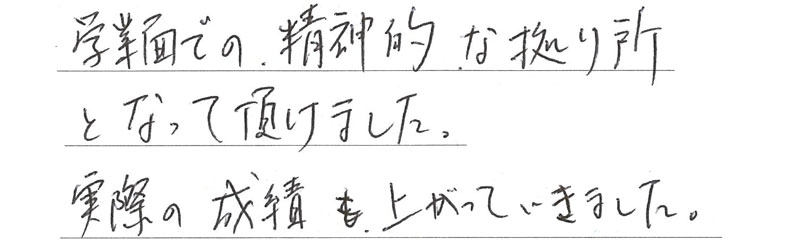 学業面での精神的な拠り所
となって頂けました。
実際の成績も上がっていきました。